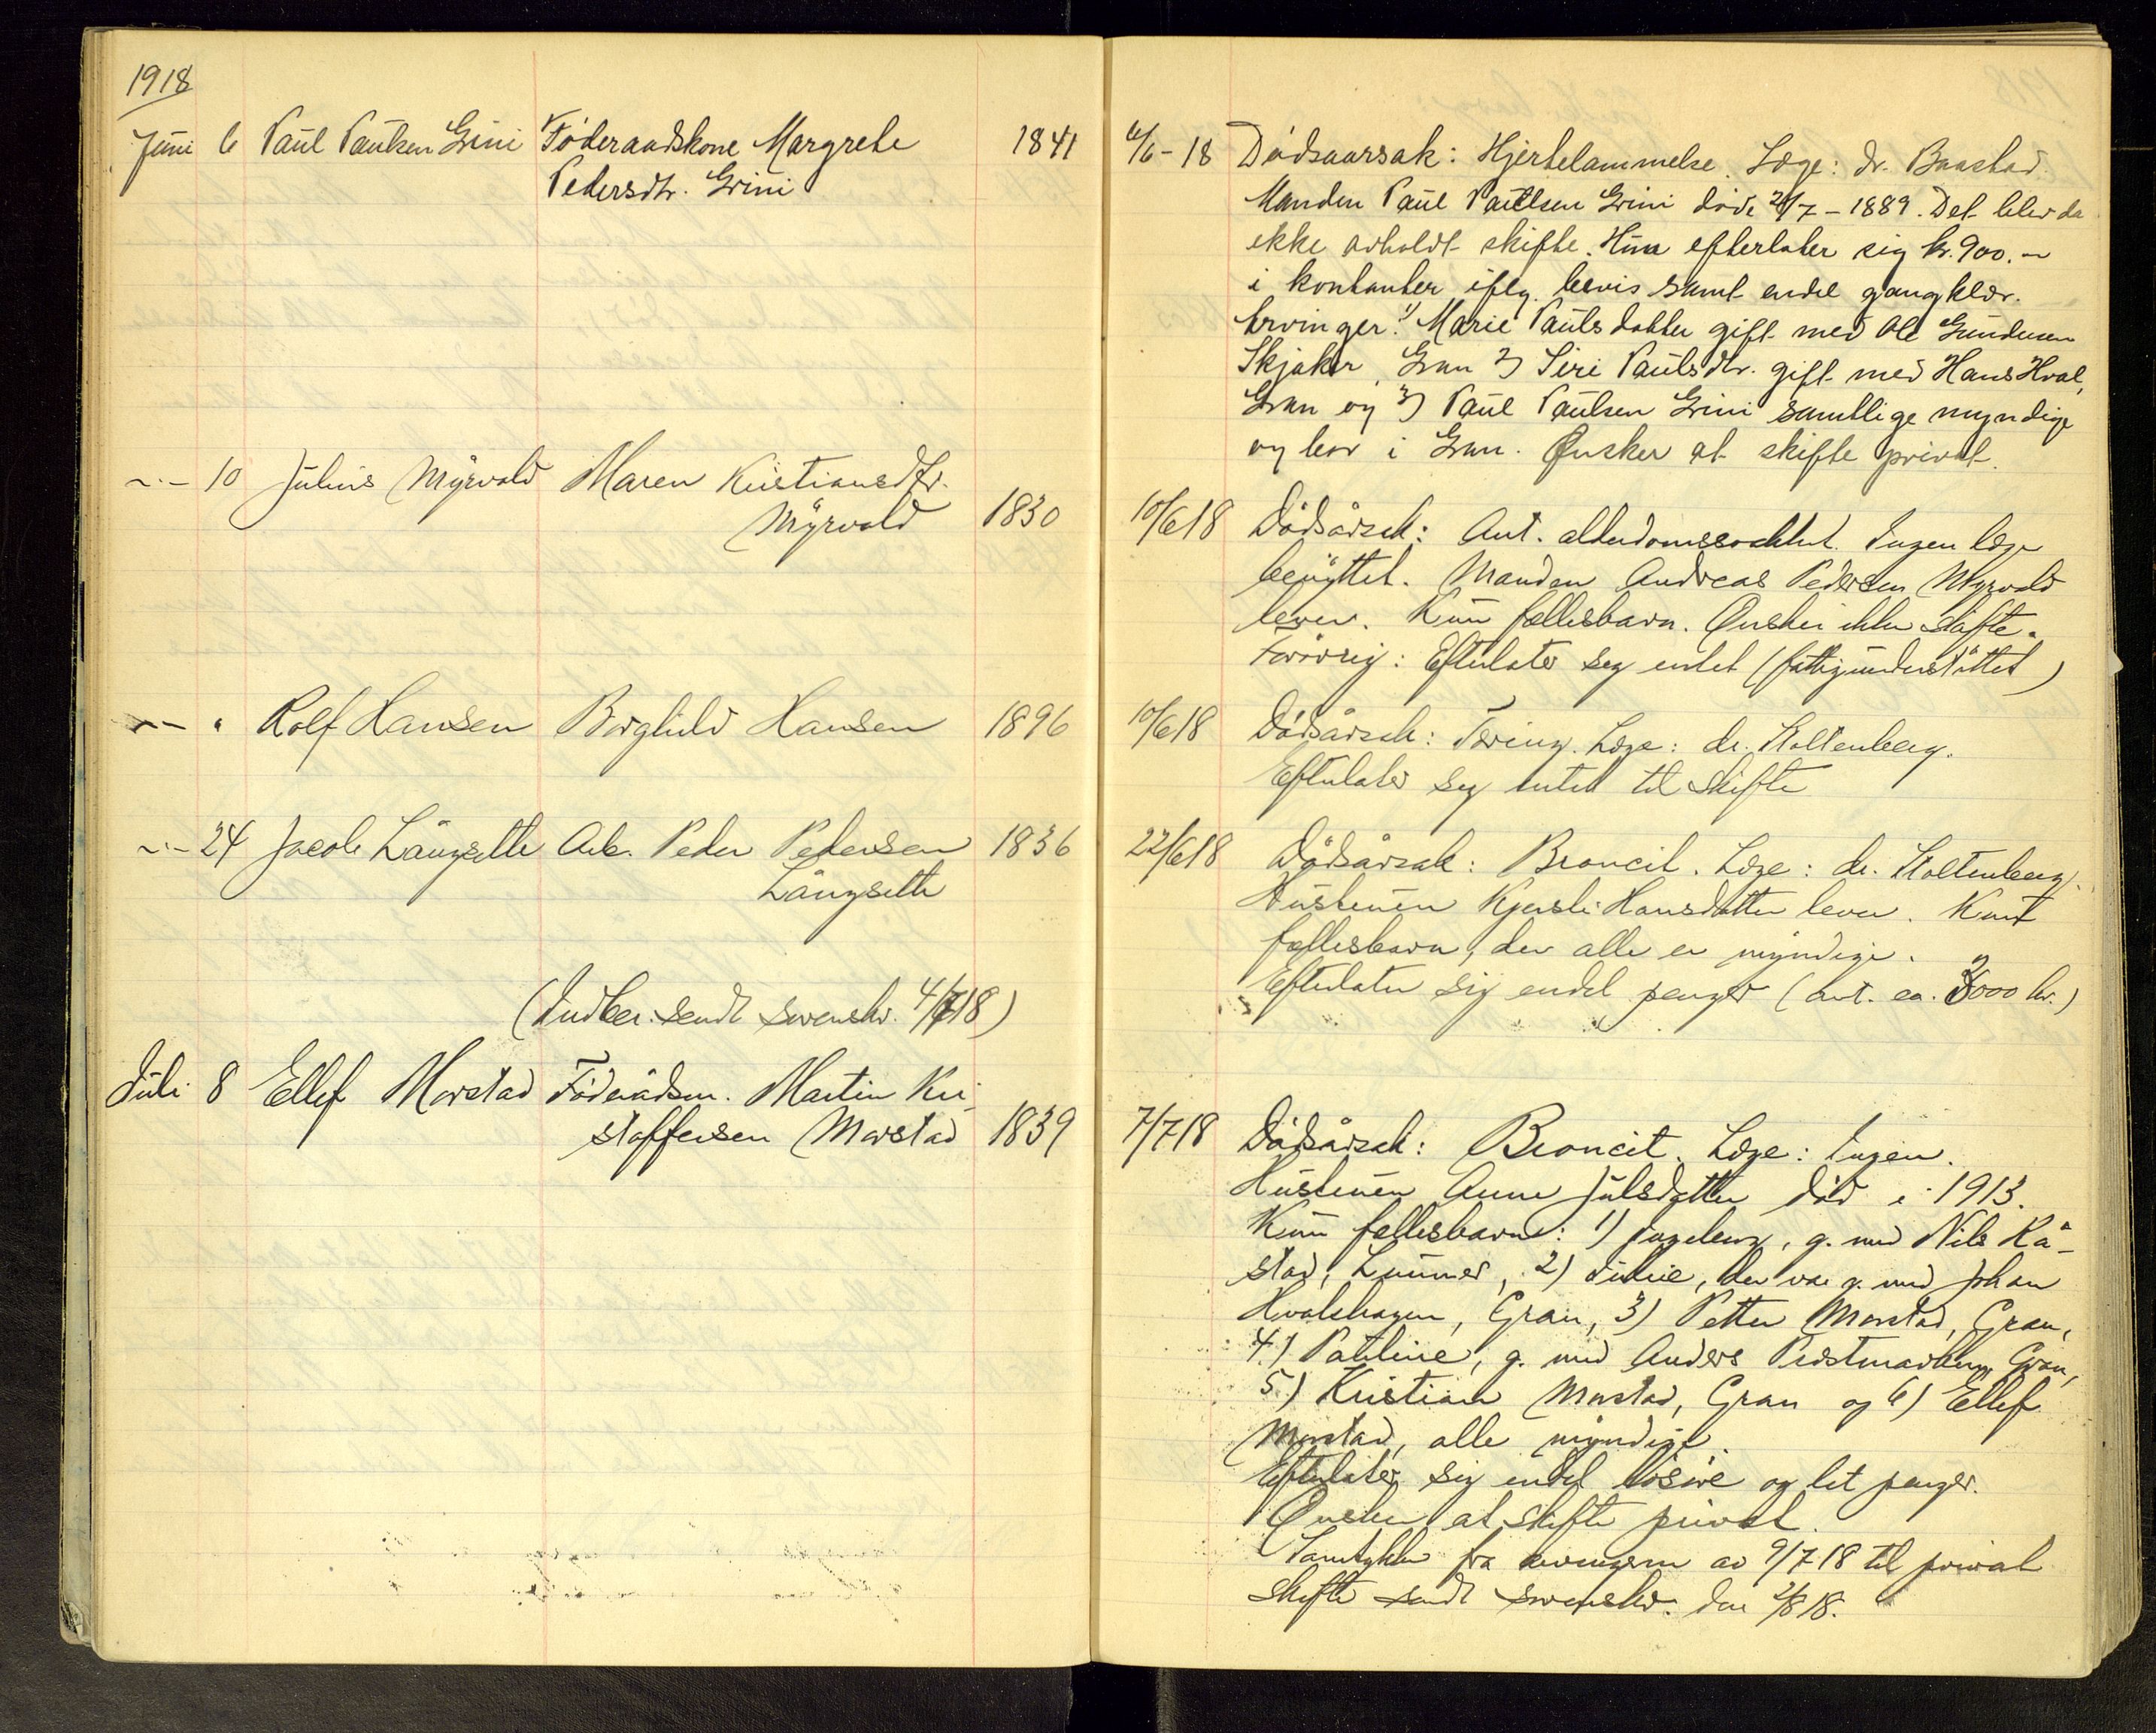 1918
Juni 6 Paul Paulsen Grini Föderaadskone Margrete 1841
Pedersdtr. Grini
10 Julius Myrvold Maren Kristiansdtr.
Myrvold 1830
Rolf Hansen Borghild Hansen 1896
24 Jacob Långsette Arb. Peder Pedersen 1836
Långsette
(Indber. sendt sorenskr. 4/7 18)
Juli 8 Ellef Morstad Föderådsm. Martin Kri-
stoffersen Morstad 1839
6/6-18 Dødsaarsak: Hjertelammelse. Læge: dr. Baastad.
Manden Paul Paulsen Grini døde /7-1889. Det blev da
ikke avholdt skifte. Hun efterlater sig kr. 900.-
i kontanter iflg. bevis samt endel gangklær.
Arvinger: 1) Marie Paulsdatter gift med Ole Gundersen
Skjaker, Gran 2) Siri Paulsdtr. gift med Hans Hval,
Gran og 3) Paul Paulsen Grini samtlige myndige
og bor i Gran. Ønsker at skifte privat.
10/6 18 Dödsårsak: Ant. alderdomssvakhet. Ingen læge
benyttet. Manden Andreas Pedersen Myrvold
lever. Kun fællesbarn. Ønsker ikke skifte.
Forövrig: Efterlater seg intet (fattigunderstöttet)
10/6 18 Dödsårsak: Tæring. Læge: dr. Stoltenberg.
Efterlater seg intet til skifte
22/6 18 Dödsårsak: Broncit. Læge: dr. Stoltenberg.
Hustruen Kjersti Hansdatter lever. Kun
fællesbarn, der alle er myndige.
Efterlater sig endel penger (ant. ca. 3000 kr.)
7/7 18 Dödsårsak: Broncit. Læge: Ingen.
Hustruen Anne Julsdatter död i 1913.
Kun fællesbarn: 1) Ingeborg, g. med Nils Rå-
stad, Lunner, 2) Julie, der var g. med Johan
Hvalshagen, Gran, 3) Petter Morstad, Gran,
4.) Pauline, g. med Anders Prestmarken Gran,
5.) Kristian Morstad, Gran og 6) Ellef
Morstad, alle myndige.
Efterlater sig endel lösöre og lit penger.
Ønsker at skifte privat.
Samtykke fra arvingerne av 9/7 18 til privat
skifte sendt sorenskr. den 2/8 18.